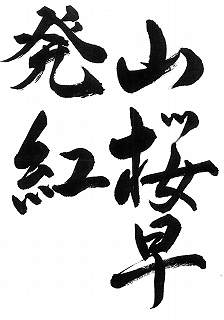 山桜早
発紅